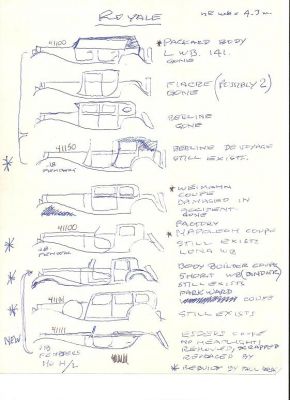 ROYALE
41100
* PACKARD BODY
L WB. 141.
GONE
FIACRE (POSSIBLY 2)
GONE
BERLINE
GONE
41150
BERLINE DE VOYAGE
STILL EXISTS.
*
* WEIMANN
COUPE
DAMAGED IN
ACCIDENT
GONE
FACTORY
41100
* NAPOLEON COUPE
* STILL EXISTS
LONG WB
BODY BUILDER COUPE
* SHORT WB (BINDER)
STILL EXISTS
PARK WARD
COUPE
* STILL EXISTS
41111
NEW
ESDERS COUPE
NO HEADLIGHTS
REMOVED, SCRAPPED
REPLACED BY
* REBUILT BY